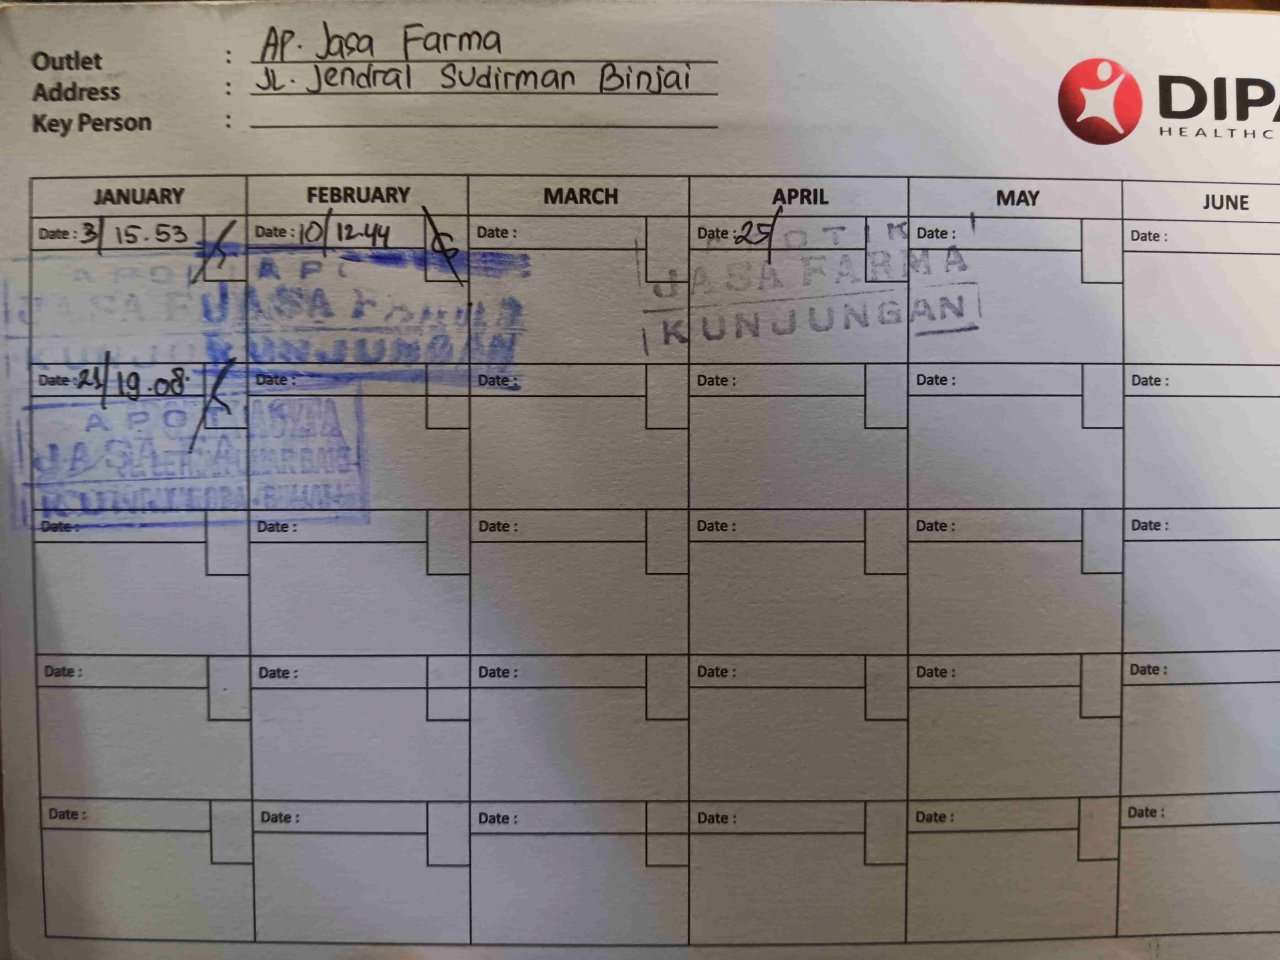 Outlet : AP. Jasa Farma
Address : JL. Jendral Sudirman Binjai
Key Person :
DIPA
HEALTHC
JANUARY FEBRUARY MARCH APRIL MAY JUNE
Date : 3/ 15.53 Date : 10/ 12.44 Date : Date : 25/ Date : Date :
APO AP APOTIK
JASA F JASA FARMA JASA FARMA
KUNJU KUNJUNGAN KUNJUNGAN
Date : 21/ 19.08 Date : Date : Date : Date : Date :
APOT
JASA FA
KUN
Date : Date : Date : Date : Date : Date :
Date : Date : Date : Date : Date : Date :
Date : Date : Date : Date : Date : Date :